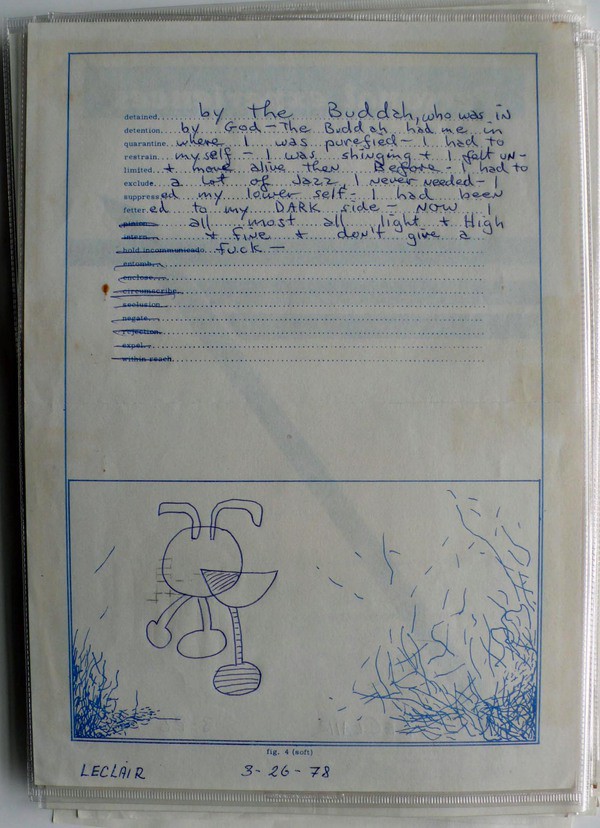 detained. by the Buddah, who was in
detention. by God - The Buddah had me in
quarantine. where I was purefied - I had to
restrain. myself - I was shinging + I felt un-
limited. + more alive then Before - I had to
exclude. a lot of Jazz I never needed - I
suppressed my lower self - I had been
fettered to my DARK side - NOW
all most all light + High
intern. + fine + don't give a
hold incommunicado fuck -
entomb.
enclose.
circumscribe.
seclusion.
negate.
rejection.
expel.
within reach.
fig. 4 (soft)
LECLAIR 3-26-78